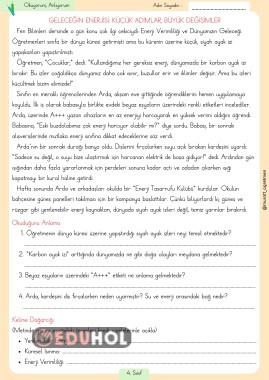 Okuyorum, Anlıyorum
Adım Soyadım:
GELECEĞİN ENERJİSİ: KÜÇÜK ADIMLAR, BÜYÜK DEĞİŞİMLER
Fen Bilimleri dersinde o gün konu çok ilgi çekiciydi: Enerji Verimliliği ve Dünyamızın Geleceği.
Öğretmenleri sınıfa bir dünya küresi getirmişti ama bu kürenin üzerine küçük, siyah ayak izi
yapışkanları yapıştırılmıştı.
Öğretmen, "Çocuklar," dedi. "Kullandığımız her gereksiz enerji, dünyamızda bir karbon ayak izi
bırakır. Bu izler çoğaldıkça dünyamız daha çok ısınır, buzullar erir ve iklimler değişir. Ama bu izleri
küçültmek bizim elimizde!"
Sınıfın en meraklı öğrencilerinden Arda, akşam eve gittiğinde öğrendiklerini hemen uygulamaya
koyuldu. İlk iş olarak babasıyla birlikte evdeki beyaz eşyaların üzerindeki renkli etiketleri incelediler.
Arda, üzerinde A+++ yazan cihazların en az enerjiyi harcayarak en yüksek verimi aldığını öğrendi.
Babasına, "Eski buzdolabımız çok enerji harcıyor olabilir mi?" diye sordu. Babası, bir sonraki
alışverişlerinde mutlaka enerji sınıfına dikkat edeceklerine söz verdi.
Arda'nın bir sonraki durağı banyo oldu. Dişlerini fırçalarken suyu açık bırakan kardeşini uyardı:
"Sadece su değil, o suyu bize ulaştırmak için harcanan elektrik de boşa gidiyor!" dedi. Ardından gün
ışığından daha fazla yararlanmak için perdeleri sonuna kadar açtı ve odadan çıkarken ışığı
kapatmayı bir kural hâline getirdi.
Hafta sonunda Arda ve arkadaşları okulda bir "Enerji Tasarrufu Kulübü" kurdular. Okulun
bahçesine güneş panelleri takılması için bir kampanya başlattılar. Çünkü biliyorlardı ki, güneş ve
rüzgâr gibi yenilenebilir enerji kaynakları, dünyada siyah ayak izleri değil, temiz yarınlar bırakırdı.
Okuduğunu Anlama
1. Öğretmenin dünya küresi üzerine yapıştırdığı siyah ayak izleri neyi temsil etmektedir?
2. "Karbon ayak izi" arttığında dünyamızda ne gibi doğa olayları meydana gelmektedir?
3. Beyaz eşyaların üzerindeki "A+++" etiketi ne anlama gelmektedir?
4. Arda, kardeşini diş fırçalarken neden uyarmıştır? Su ve enerji arasındaki bağ nedir?
Kelime Dağarcığı
• Küresel Isınma:
• Enerji Verimliliği:
EDUHOL
4. Sınıf